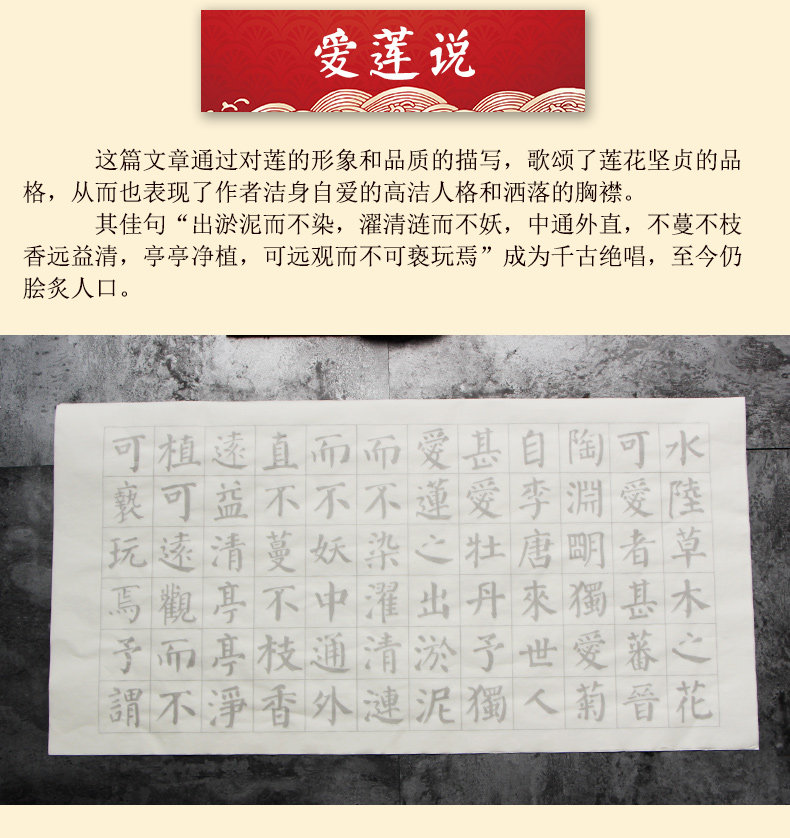 爱莲说
这篇文章通过对莲的形象和品质的描写，歌颂了莲花坚贞的品
格，从而也表现了作者洁身自爱的高洁人格和洒落的胸襟。
其佳句“出淤泥而不染，濯清涟而不妖，中通外直，不蔓不枝
香远益清，亭亭净植，可远观而不可亵玩焉”成为千古绝唱，至今仍
脍炙人口。
水陸草木之花
可愛者甚蕃晉
陶淵明獨愛菊
自李唐來世人
甚愛牡丹予獨
愛蓮之出淤泥
而不染濯清漣
而不妖中通外
直不蔓不枝香
遠益清亭亭淨
植可遠觀而不
可褻玩焉予謂